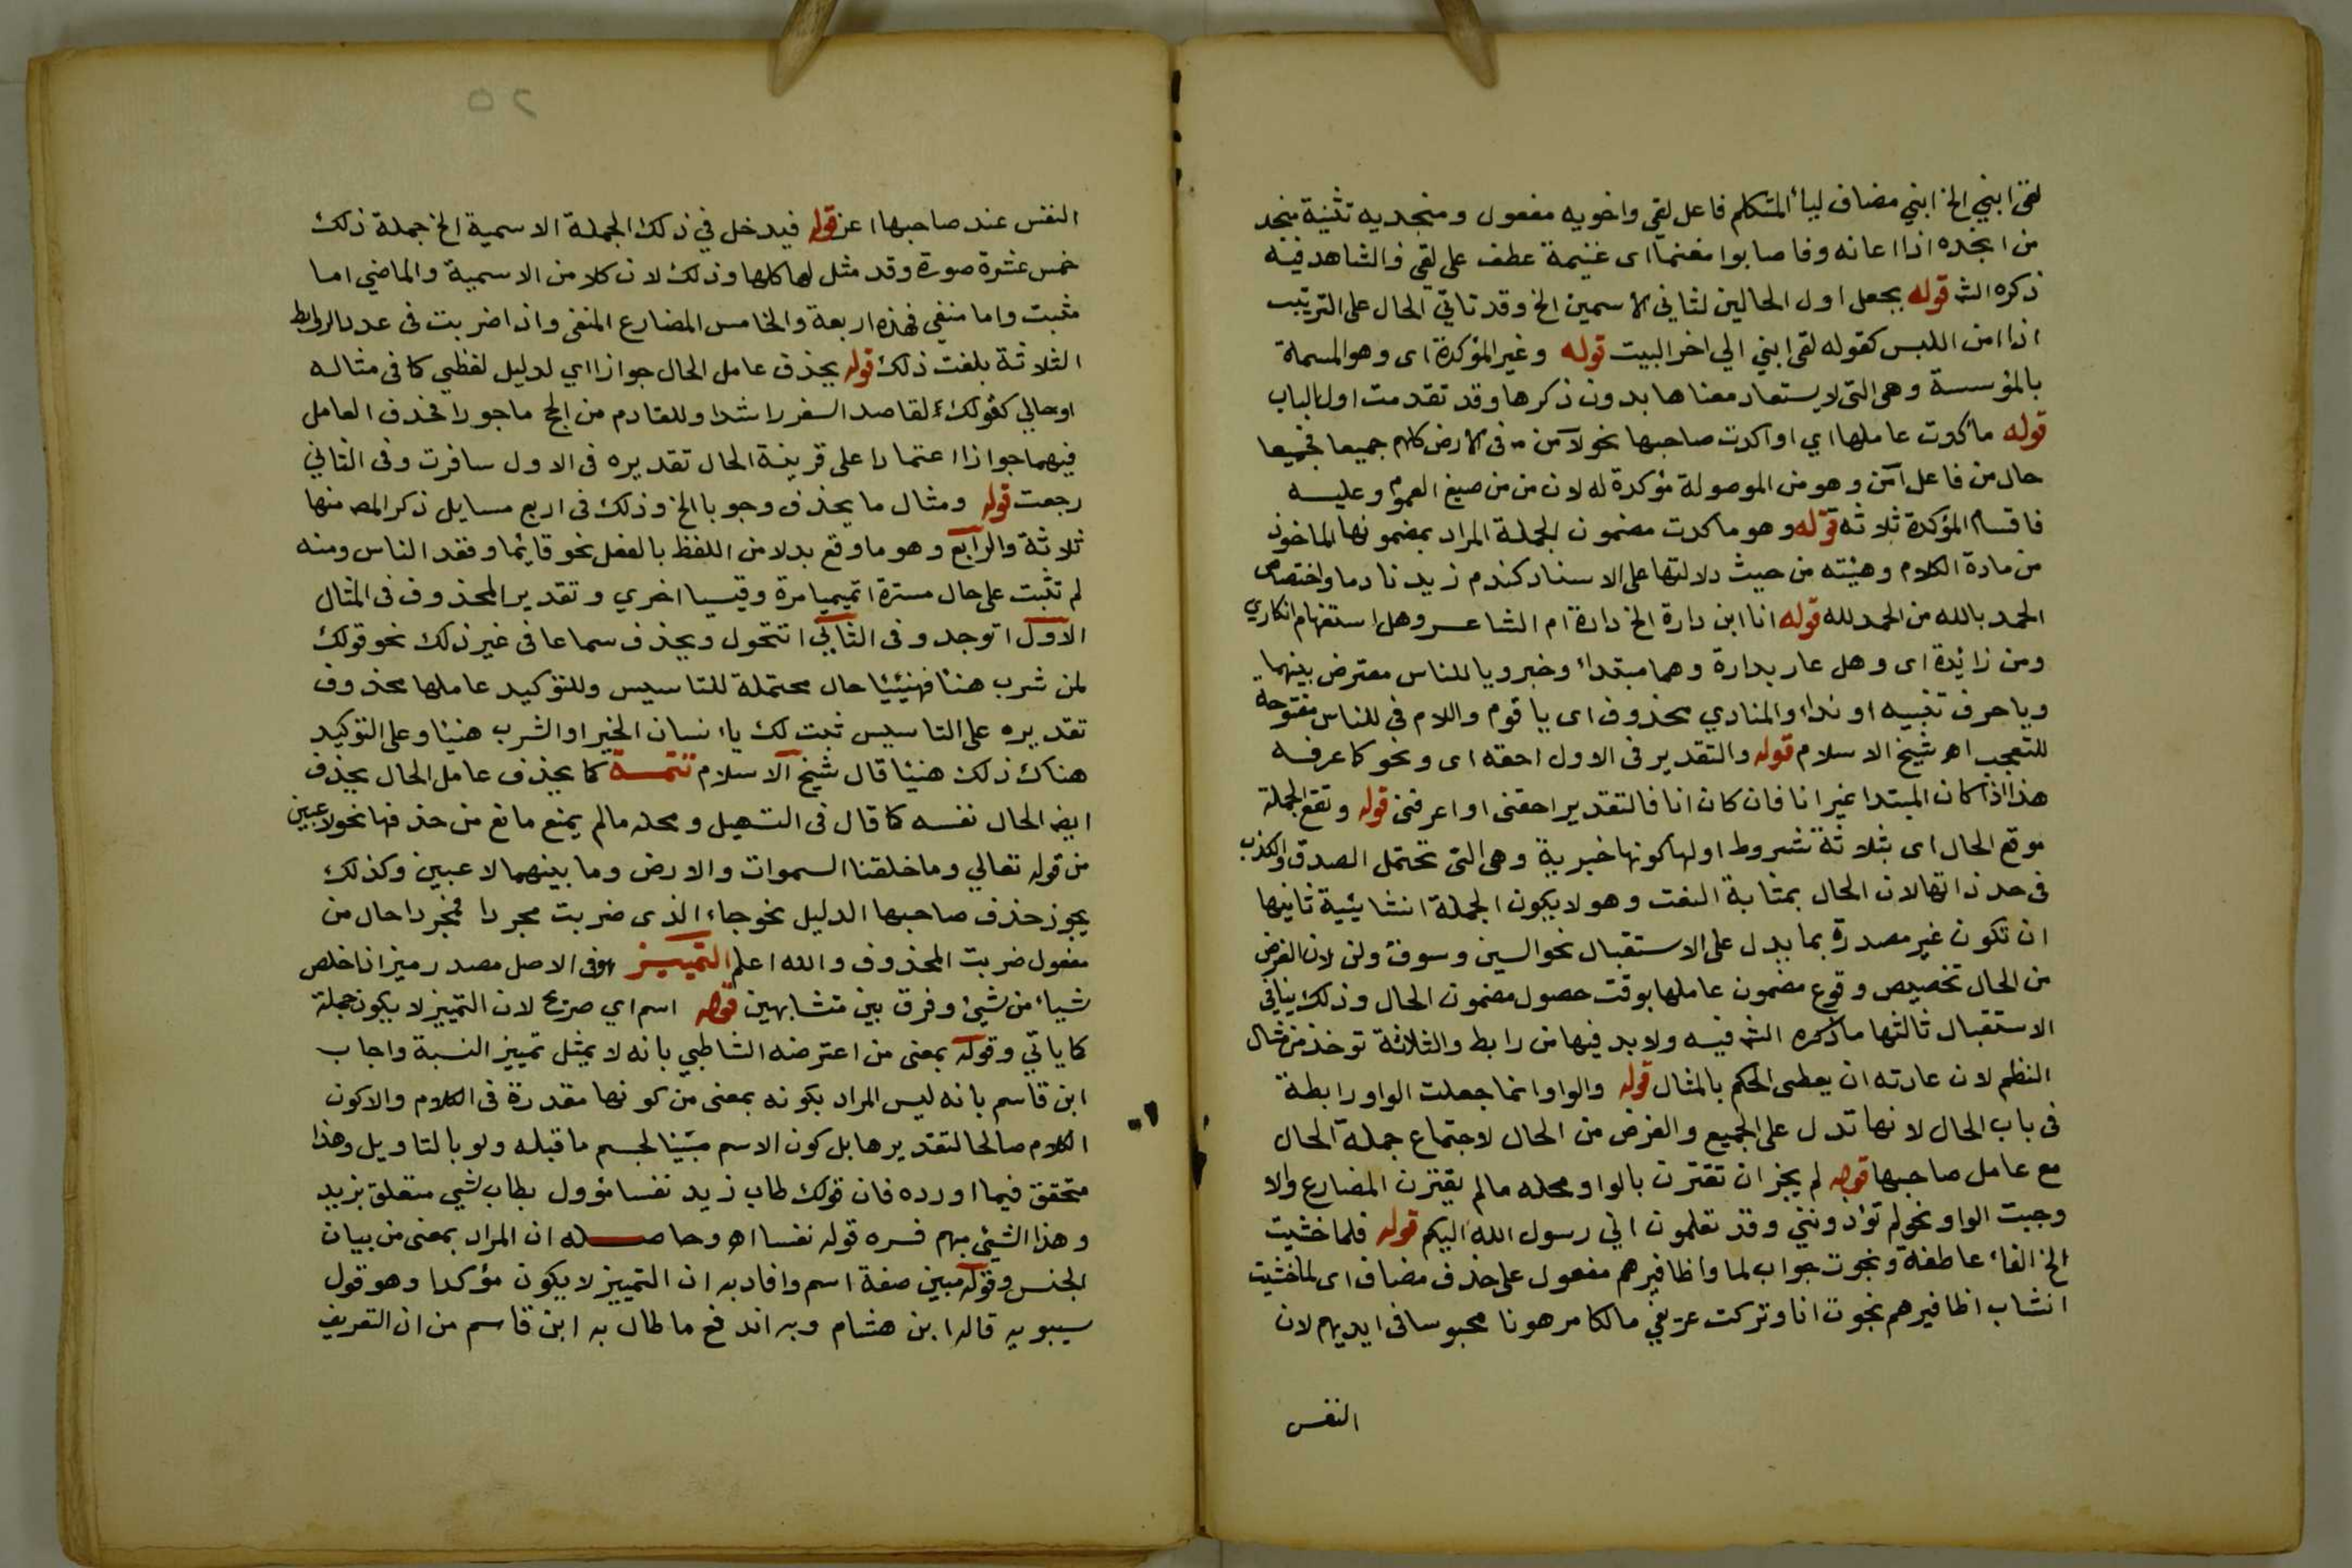 لقى ابني الخ ابني مضاف ليأ المتكلم فاعل لقي واخويه مفعول ومنجديه تثنية منجد
من انجده اذا اعانه وفاصابوا مغنما اى غنيمة عطف على لقي والشاهد فيه
ذكره الش قوله بجعل اول الحالين لثاني الاسمين الخ وقد تاتي الحال على الترتيب
اذا امن اللبس كقوله لقى ابني الي اخر البيت قوله وغير المؤكدة اى وهو المسماة
بالمؤسسة وهى التى لا يستعاد معناها بدون ذكرها وقد تقدمت اول الباب
قوله ما كدت عاملها اي او اكدت صاحبها نحو لآمن من فى الارض كلهم جميعا فجميعا
حال من فاعل آمن وهو من الموصولة مؤكدة له لان من من صيغ العموم وعليه
فاقسام المؤكدة ثلاثه قوله وهو ما كدت مضمون الجملة المراد بمضمونها الماخوذ
من مادة الكلام وهيئته من حيث دلالتها على الاسناد كندم زيد نادما واختصاص
الحمد بالله من الحمد لله قوله انا ابن دارة الخ دارة ام الشاعر وهل استفهام انكاري
ومن زائدة اى وهل عار بدارة وهما مبتداء وخبر ويا للناس معترض بينهما
ويا حرف تنبيه او نداء والمنادي محذوف اى يا قوم واللام فى للناس مفتوحة
للتعجب اه شيخ الاسلام قوله والتقدير فى الاول احقه اى ونحو كاعرفه
هذا اذا كان المبتدا غير انا فان كان انا فالتقدير احقنى او اعرفنى قوله وتقع الجملة
موقع الحال اى بثلاثة شروط اولها كونها خبرية وهى التى تحتمل الصدق والكذب
فى حد ذاتها لان الحال بمثابة النعت وهو لا يكون الجملة انشائية ثانيها
ان تكون غير مصدرة بما يدل على الاستقبال نحو السين وسوف ولن لان الغرض
من الحال تخصيص وقوع مضمون عاملها بوقت حصول مضمون الحال وذلك ينافي
الاستقبال ثالثها ما ذكره الش فيه ولا بد فيها من رابط والثلاثة توخذ من مثال
النظم لان عادته ان يعطى الحكم بالمثال قوله والواو انما جعلت الواو رابطة
فى باب الحال لانها تدل على الجميع والغرض من الحال لاجتماع جملة الحال
مع عامل صاحبها قوله لم يجز ان تقترن بالواو ومحله مالم يقترن المضارع والا
وجبت الواو نحو لم تؤذونني وقد تعلمون اني رسول الله اليكم قوله فلما خشيت
الخ الفاء عاطفة ونجوت جواب لما واظافيرهم مفعول على حذف مضاف اى لما خشيت
انشاب اظافيرهم نجوت انا وتركت عريفي مالكا مرهونا محبوسا فى ايديهم لان
النفس
٢٥
النفس عند صاحبها اعز قوله فيدخل في ذلك الجملة الاسمية الخ جملة ذلك
خمس عشرة صورة وقد مثل لها كلها وذلك لان كلا من الاسمية والماضي اما
مثبت واما منفي فهذه اربعة والخامس المضارع المنفى واذا ضربت فى عدد الروابط
الثلاثة بلغت ذلك قوله يحذف عامل الحال جوازا اي لدليل لفظي كما فى مثاله
او حالي كقولك لقاصد السفر راشدا وللقادم من الحج ماجورا فحذف العامل
فيهما جوازا اعتمادا على قرينة الحال تقديره فى الاول سافرت وفى الثاني
رجعت قوله ومثال ما يحذف وجوبا الخ وذلك فى اربع مسايل ذكر المص منها
ثلاثة والرابع وهو ما وقع بدلا من اللفظ بالفعل نحو قايما وقد الناس ومنه
لم تثبت على حال مسترة اتميميا مرة وقيسيا اخري وتقدير المحذوف فى المثال
الاول اتوجد وفى الثاني اتتحول ويحذف سماعا فى غير ذلك نحو قولك
لمن شرب هنئا فهنيئيا حال محتملة للتاسيس وللتؤكيد عاملها محذوف
تقديره على التاسيس ثبت لك يا انسان الخير او الشرب هنيئا وعلى التوكيد
هناك ذلك هنيئا قال شيخ الاسلام تتمة كما يحذف عامل الحال يحذف
ايضا الحال نفسه كما قال فى التسهيل ومحله مالم يمنع مانع من حذفها نحو لاعبين
من قوله تعالي وما خلقنا السموات والارض وما بينهما لاعبين وكذلك
يجوز حذف صاحبها الدليل نحو جاء الذى ضربت مجردا فمجردا حال من
مفعول ضربت المحذوف والله اعلم التمييز هو فى الاصل مصدر ميز اذا خلص
شياء من شيئ وفرق بين متشابهين قوله اسم اي صريح لان التمييز لا يكون جملة
كما ياتي وقوله بمعنى من اعترضه الشاطبي بانه لا يمثل تمييز النسبة واجاب
ابن قاسم بانه ليس المراد بكونه بمعنى من كونها مقدرة فى الكلام والا كون
الكلام صالحا لتقديرها بل كون الاسم مبينا لجسم ما قبله ولو بالتاويل وهذا
متحقق فيما اورده فان قولك طاب زيد نفسا مؤول بطاب شي متعلق بزيد
وهذا الشيئ مبهم فسره قوله نفسا اه وحاصله ان المراد بمعنى من بيان
الجنس وقوله مبين صفة اسم وافاد به ان التمييز لا يكون مؤكدا وهو قول
سيبويه قاله ابن هشام وبه اندفع ما طال به ابن قاسم من ان التعريف